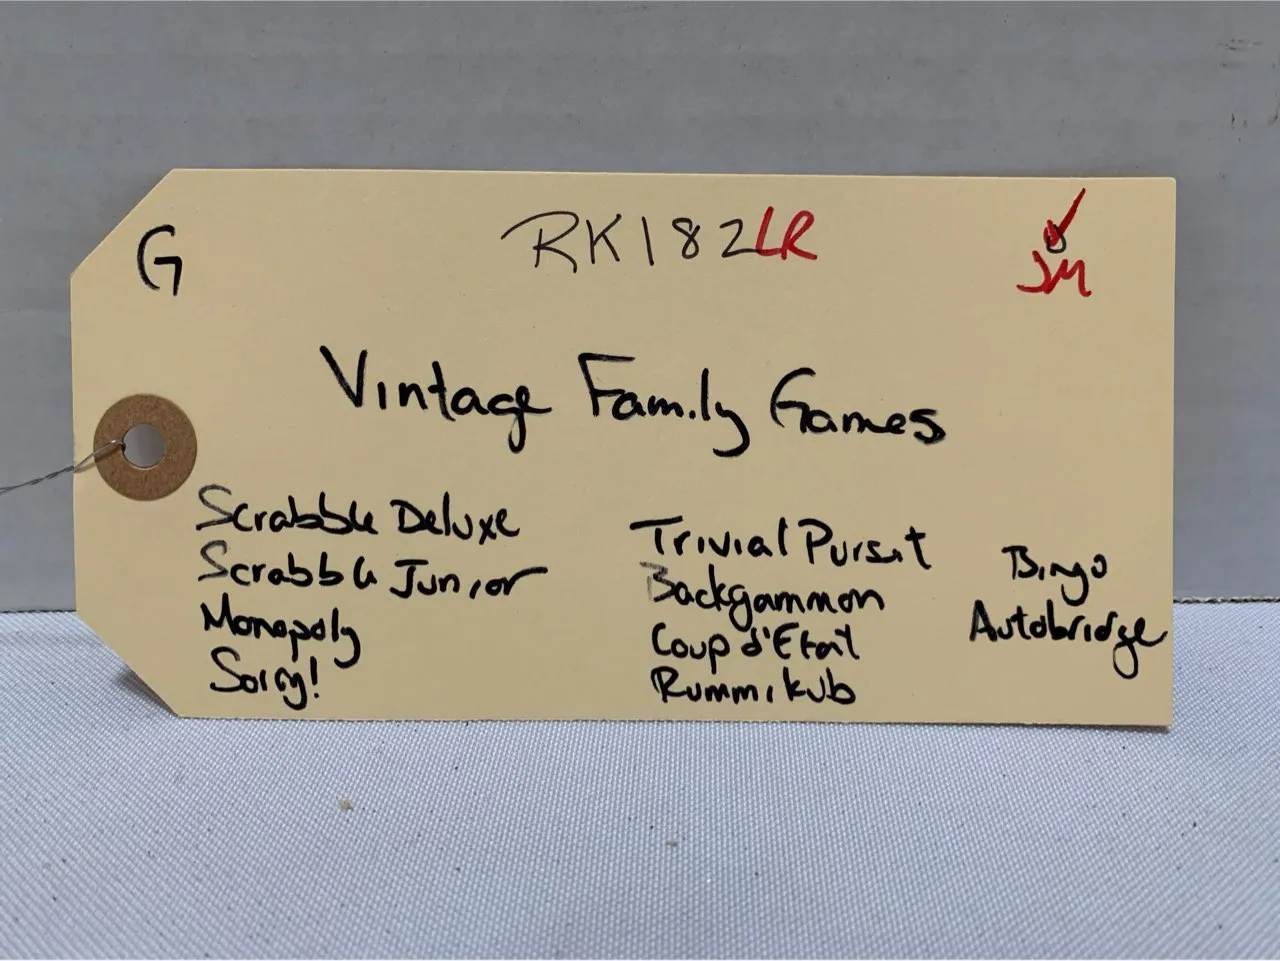 G
RK182LR
JM
Vintage Family Games
Scrabble Deluxe
Scrabble Junior
Monopoly
Sorry!
Trivial Pursuit
Backgammon
Coup d'Etat
Rummikub
Bingo
Autobridge